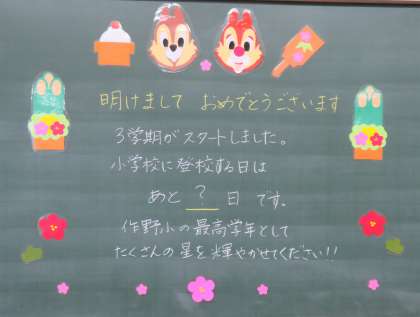 明けまして おめでとうございます
3学期がスタートしました。
小学校に登校する日は
あと ? 日 です。
作野小の最高学年として
たくさんの星を輝やかせてください!!